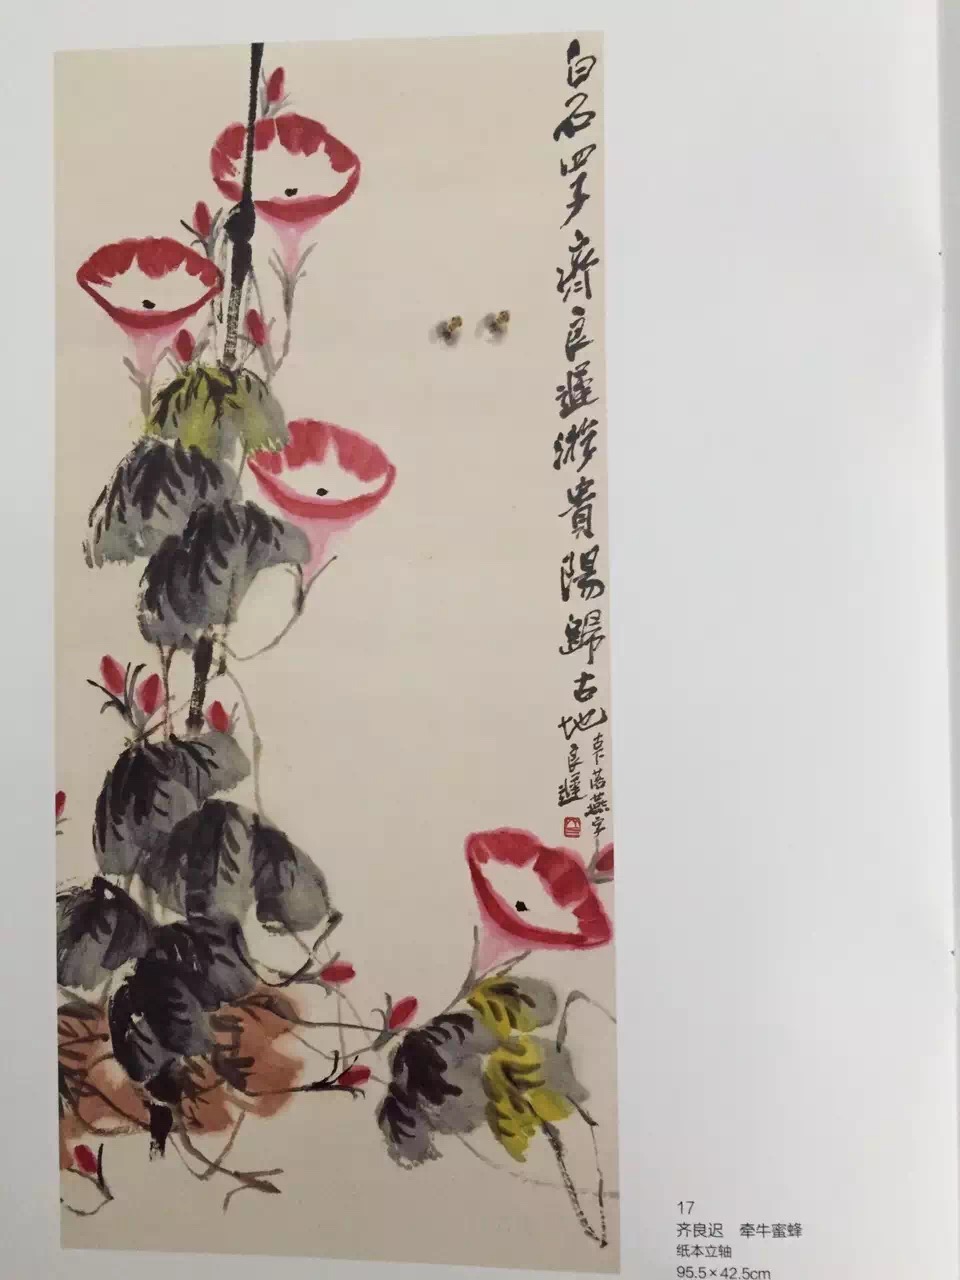 白石四子齊良遲游貴陽歸古地
古下落燕字
良遲
17
齐良迟 牵牛蜜蜂
纸本立轴
95.5×42.5cm